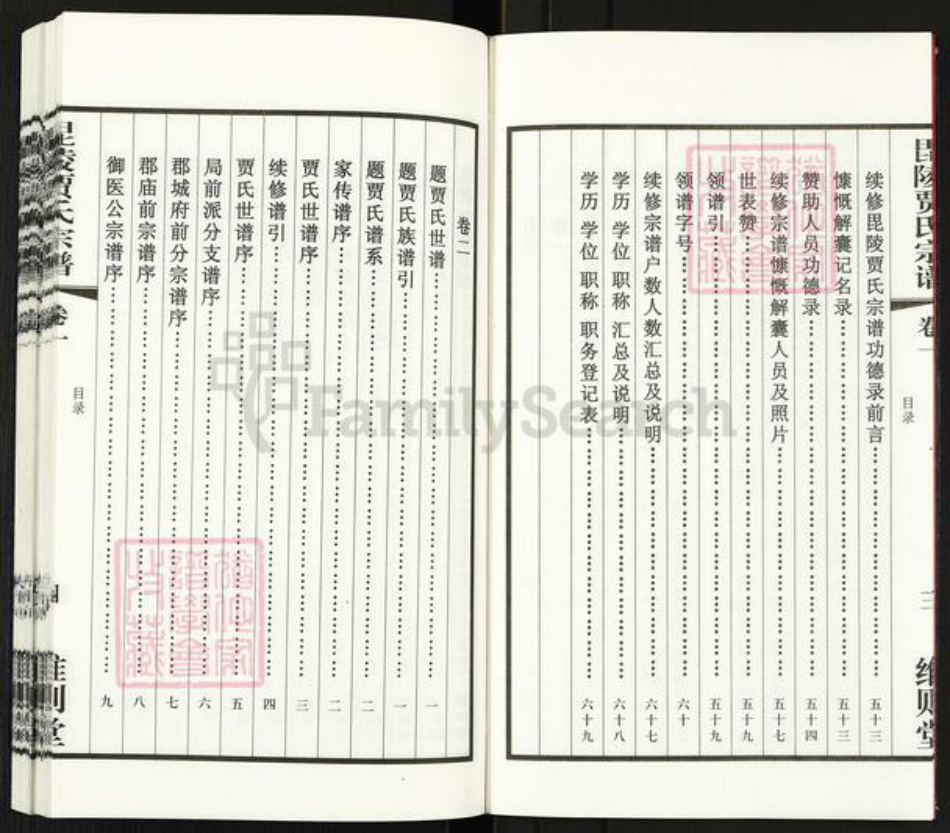 毘陵贾氏宗谱 卷一 目录 三 维则堂
续修毘陵贾氏宗谱功德录前言 五十三
慷慨解囊记名录 五十三
赞助人员功德录 五十四
续修宗谱慷慨解囊人员及照片 五十七
世表赞 五十九
领谱引 五十九
领谱字号 六十
续修宗谱户数人数汇总及说明 六十七
学历 学位 职称 汇总及说明 六十八
学历 学位 职称 职务登记表 六十九
卷二
题贾氏世谱 一
题贾氏族谱引 一
题贾氏谱系 二
家传谱序 二
贾氏世谱序 三
续修谱引 四
贾氏世谱序 五
局前派分支谱序 六
郡城府前分宗谱序 七
郡庙前宗谱序 八
御医公宗谱序 九
毘陵贾氏宗谱 卷一 目录 四 维则堂
FamilySearch